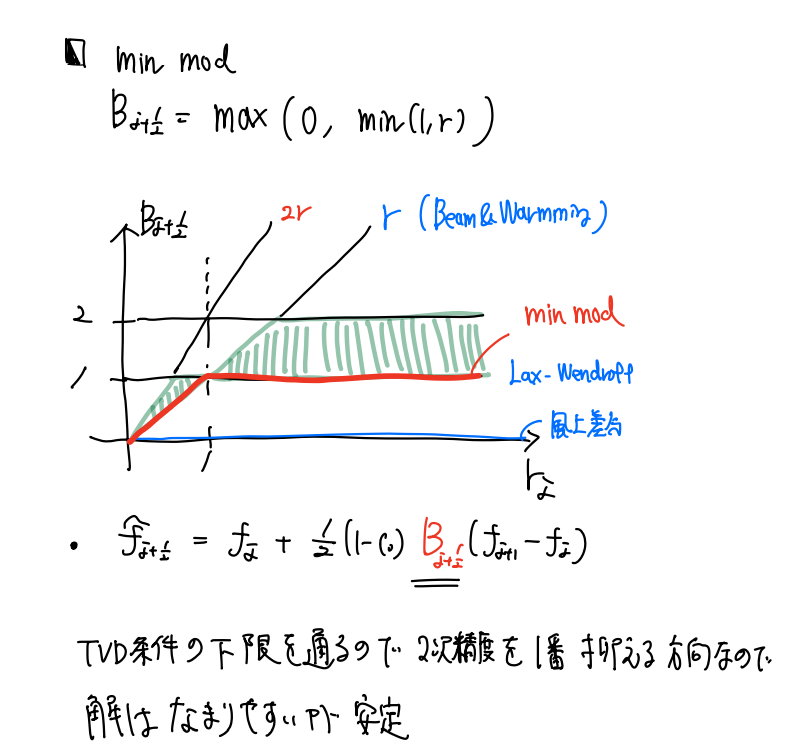 min mod
B_{j+1/2} = max (0, min(1,r))
B_{j+1/2}
2r
r (Beam&Warmming)
2
min mod
1
Lax-Wendroff
風上差分
1
r_j
• f̂_{j+1/2} = f_j + 1/2 (1-C₀) B_{j+1/2} (f_{j+1} - f_j)
TVD条件の下限を通るので 2次精度を1番抑える方向なので
解は なまりやすいが 安定